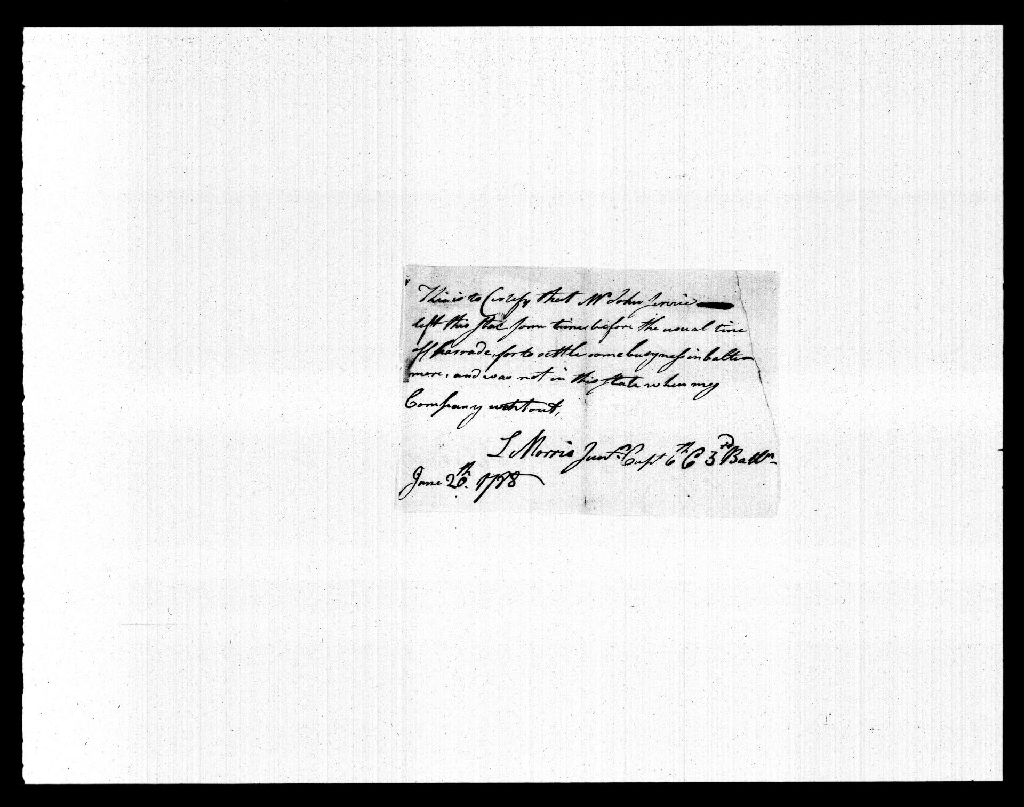 This is to Certify that Mr John Jervie
left this state some time before the usual time
off parrade, for to settle some busyness in balte
more, and was not in this state when my
Company went out,
L Morris Junr. Capt 6th C 3rd Battn
June 26th. 1778